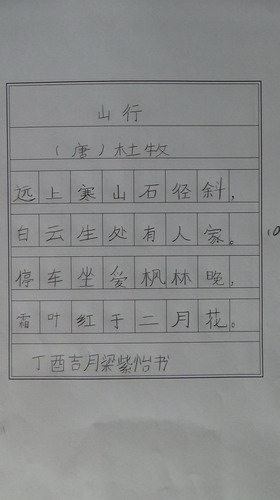 山行
（唐）杜牧
远上寒山石径斜，
白云生处有人家。
停车坐爱枫林晚，
霜叶红于二月花。
丁酉吉月梁紫怡书